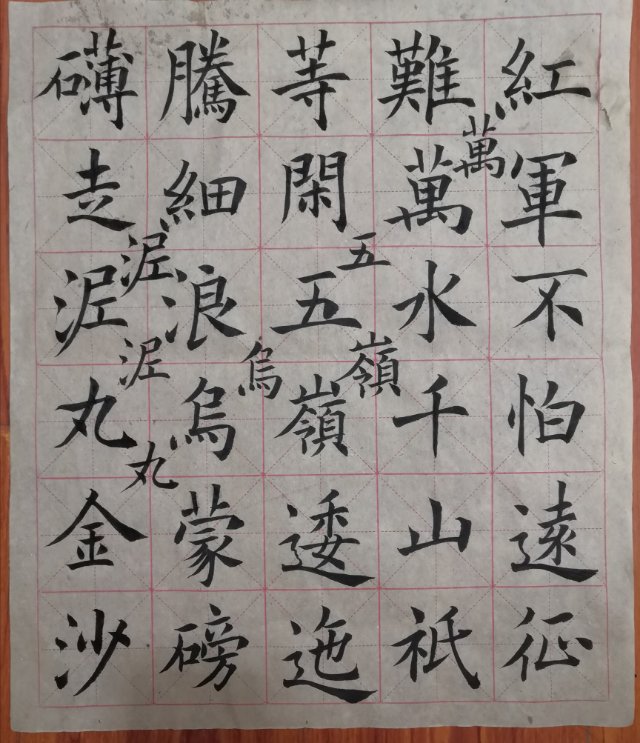 紅軍不怕遠征
萬
難萬水千山祇
五嶺
等閑五嶺逶迤
烏
騰細浪烏蒙磅
泥泥丸
礴走泥丸金沙